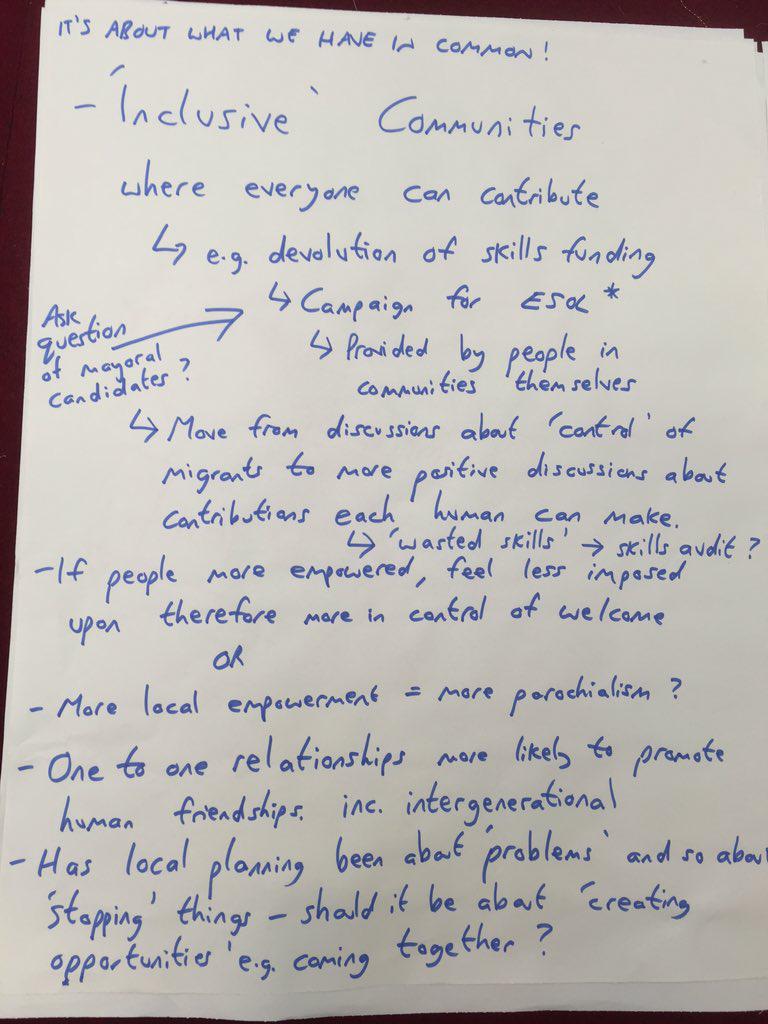 IT'S ABOUT WHAT WE HAVE IN COMMON!
- 'Inclusive' Communities
where everyone can contribute
↳ e.g. devolution of skills funding
↳ Campaign for ESOL *
Ask
question
of mayoral
candidates?
↳ Provided by people in
communities themselves
↳ Move from discussions about 'control' of
migrants to more positive discussions about
contributions each human can make.
↳ 'wasted skills' → skills audit?
- If people more empowered, feel less imposed
upon therefore more in control of welcome
OR
- More local empowerment = more parochialism?
- One to one relationships more likely to promote
human friendships. inc. intergenerational
- Has local planning been about 'problems' and so abou
'stopping' things - should it be about 'creating
opportunities' e.g. coming together?